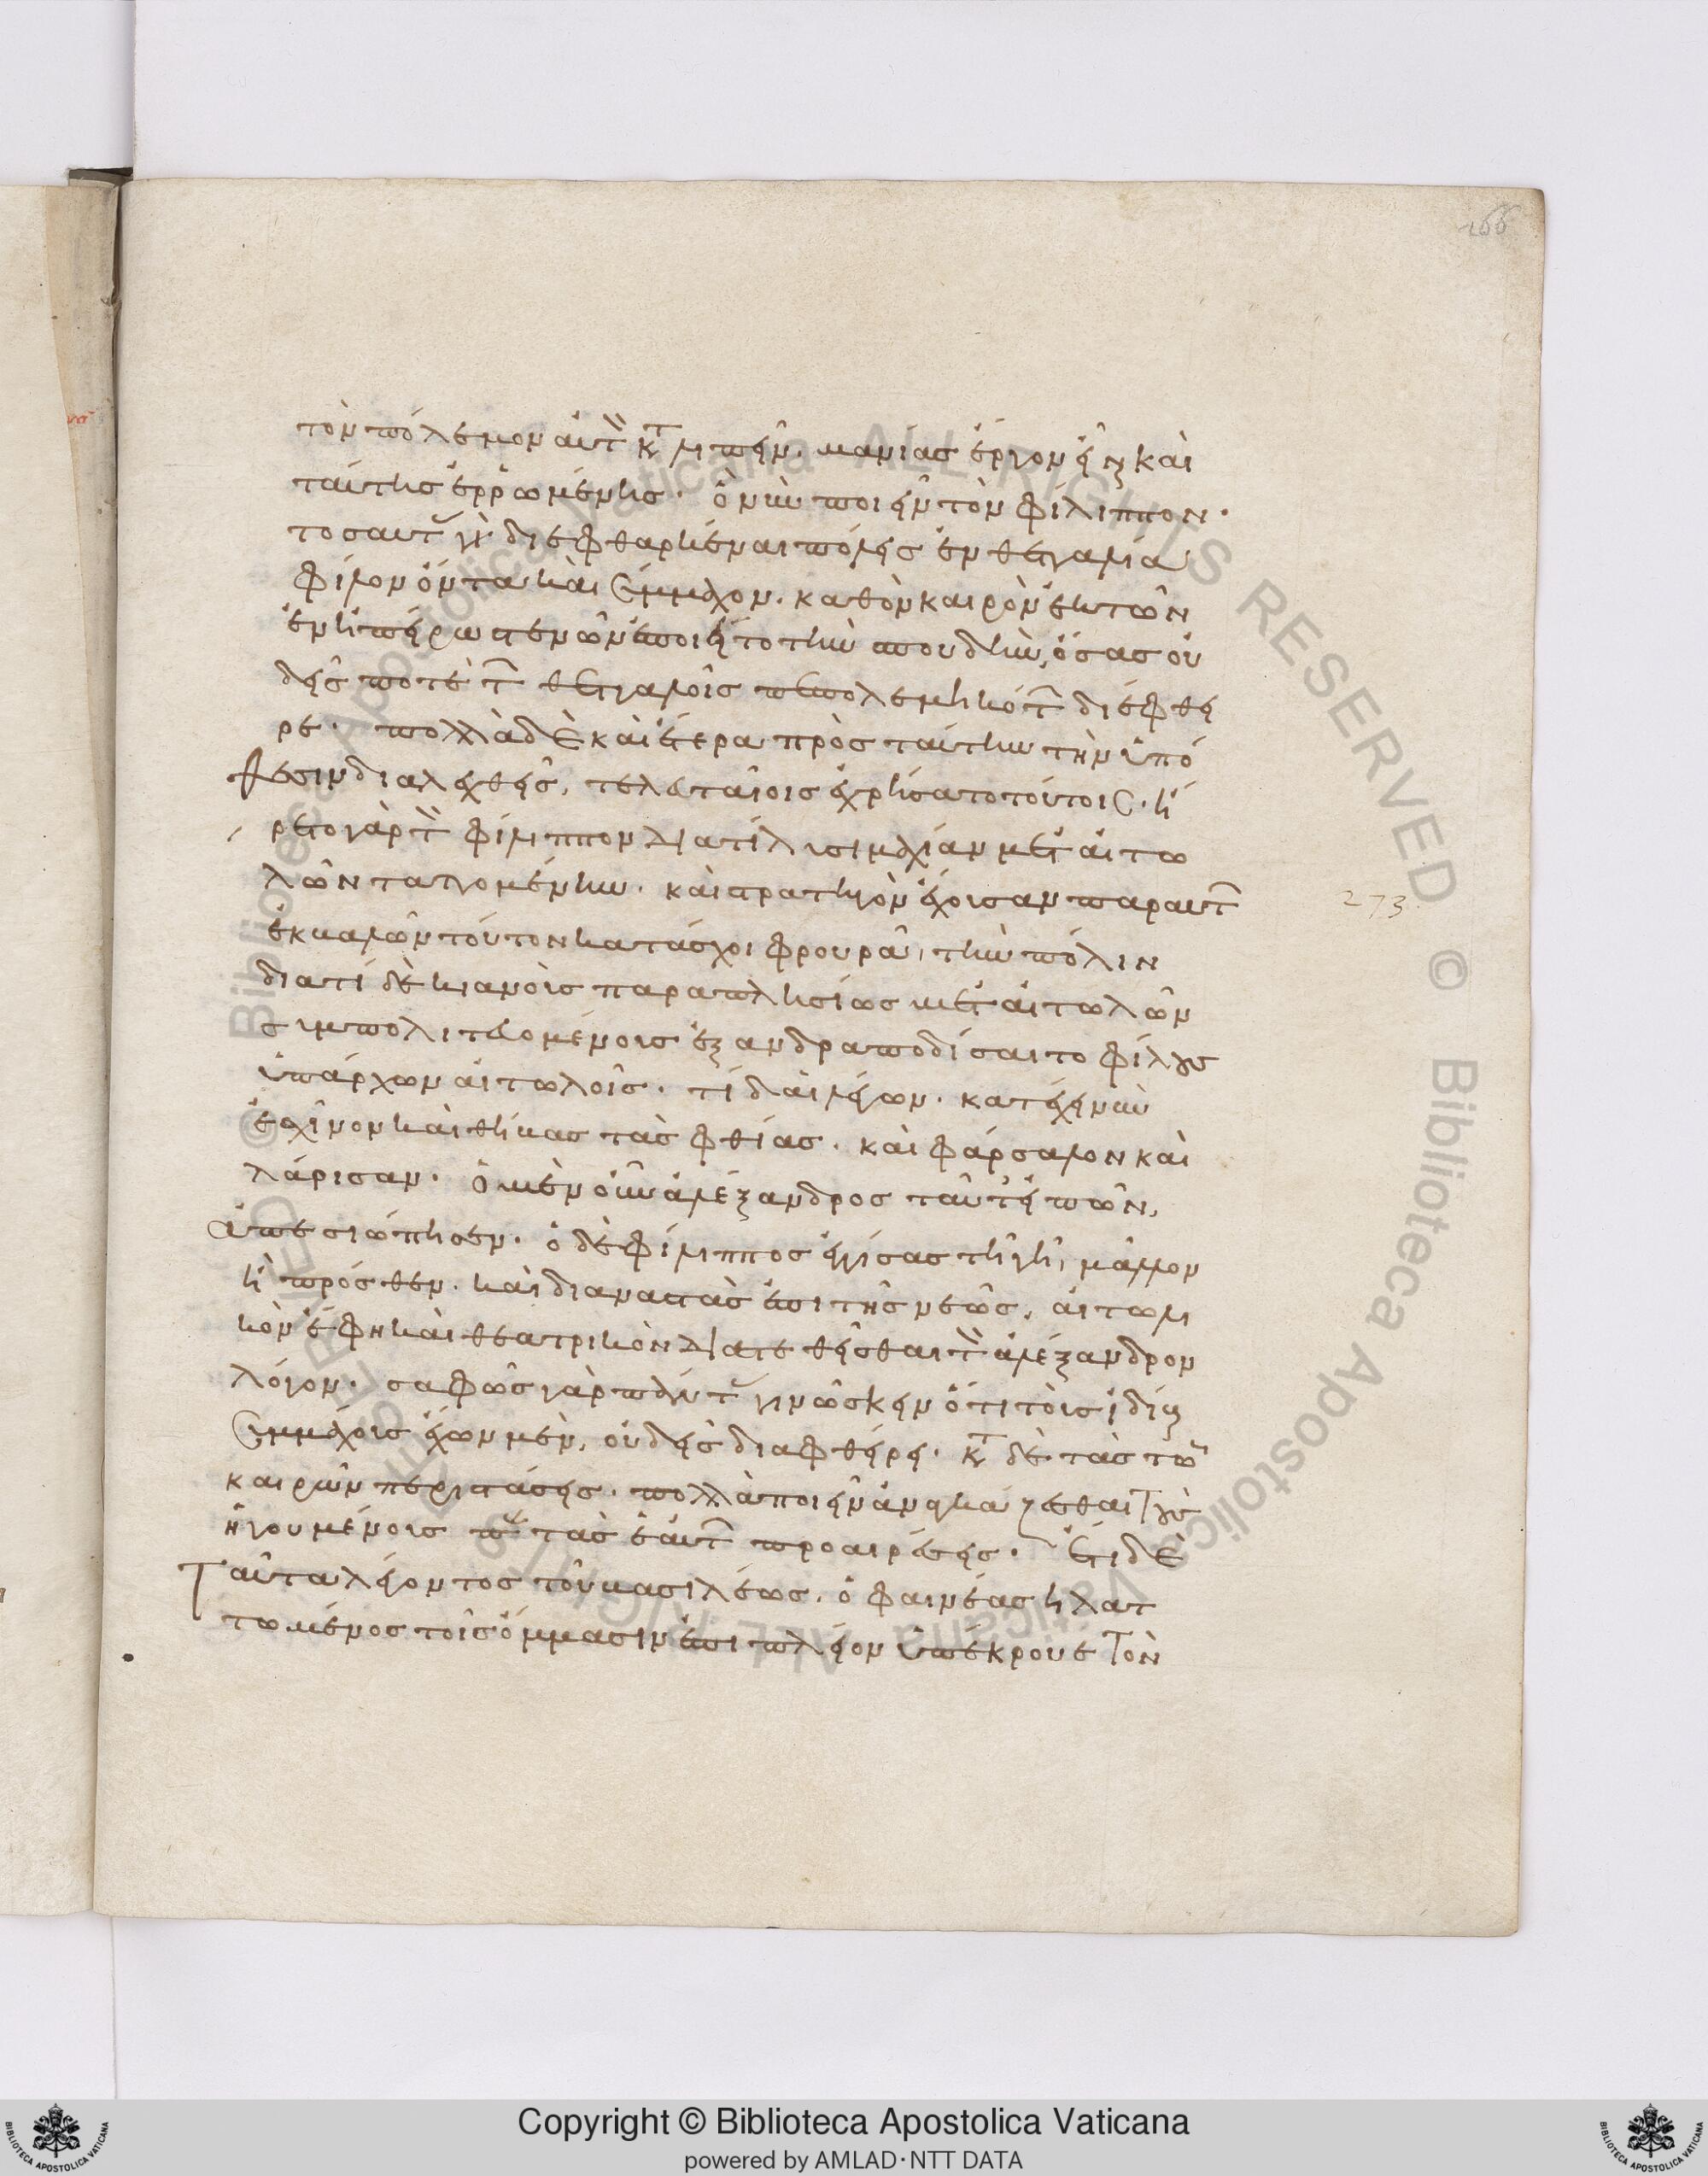 166
τὸν πόλεμον αὐτὸν καταλιπεῖν. μανίας ἔργον εἶναι καὶ
ταύτης ἐρρωμένης. ὃ νῦν ποιεῖν τὸν φίλιππον.
τοσαύτας γὰρ διεφθαρκέναι πόλεις ἐν θετταλία
φίλον ὄντα καὶ σύμμαχον. καθ ὃν καιρὸν ἐκ τῶν
ἐν ἠπείρω στενῶν ἐποιεῖτο τὴν σπουδὴν, ὅσας οὐ
δεὶς ποτὲ τῶν θετταλοῖς πεπολεμηκότων διέφθει
ρε. πολλὰ δὲ καὶ ἕτερα πρὸς ταύτην τὴν ὑπό
θεσιν διαλεχθεὶς, τελευταίοις ἐχρήσατο τούτοις. ἤ
ρετο γὰρ τὸν φίλιππον διατί λυσιμαχίαν μετ αἰτω
λῶν ταττομένην. καὶ στρατηγὸν ἔχουσαν παρ αὐτῶν
273
ἐκβαλὼν τοῦτον κατάσχοι φρουρᾶ, τὴν πόλιν
διατί δὲ κιανοὺς παραπλησίως μετ αἰτωλῶν
συμπολιτευομένους ἐξανδραποδίσαιτο φίλος
ὑπάρχων αἰτωλοῖς. τί δαὶ λέγων. κατέχει νῦν
ἐχῖνον καὶ θήβας τὰς φθίας. καὶ φάρσαλον καὶ
λάρισαν. ὁ μὲν οὖν ἀλέξανδρος ταῦτ εἰπὼν,
ἀπεσιώπησεν. ὁ δὲ φίλιππος ἐγγίσας τῆ γῆ, μᾶλλον
ἢ πρόσθεν. καὶ διαναστὰς ἐπὶ τῆς νεὼς, αἰτωλι
κὸν ἔφη καὶ θεατρικὸν διατεθεῖσθαι τὸν ἀλέξανδρον
λόγον. σαφῶς γὰρ πάντας γινώσκειν ὅτι τοὺς ἰδίους
συμμάχους ἑκὼν μὲν, οὐδεὶς διαφθείρει. κατὰ δὲ τὰς τῶν
καιρῶν περιστάσεις. πολλὰ ποιεῖν ἀναγκάζεσθαι τοὺς
ἡγουμένους παρὰ τὰς ἑαυτῶν προαιρέσεις. ἔτι δὲ
ταῦτα λέγοντος τοῦ βασιλέως. ὁ φαινέας ἠλατ
τωμένος τοῖς ὄμμασιν ἐπὶ πλεῖον ὑπέκρουε τὸν
Copyright © Biblioteca Apostolica Vaticana
powered by AMLAD·NTT DATA